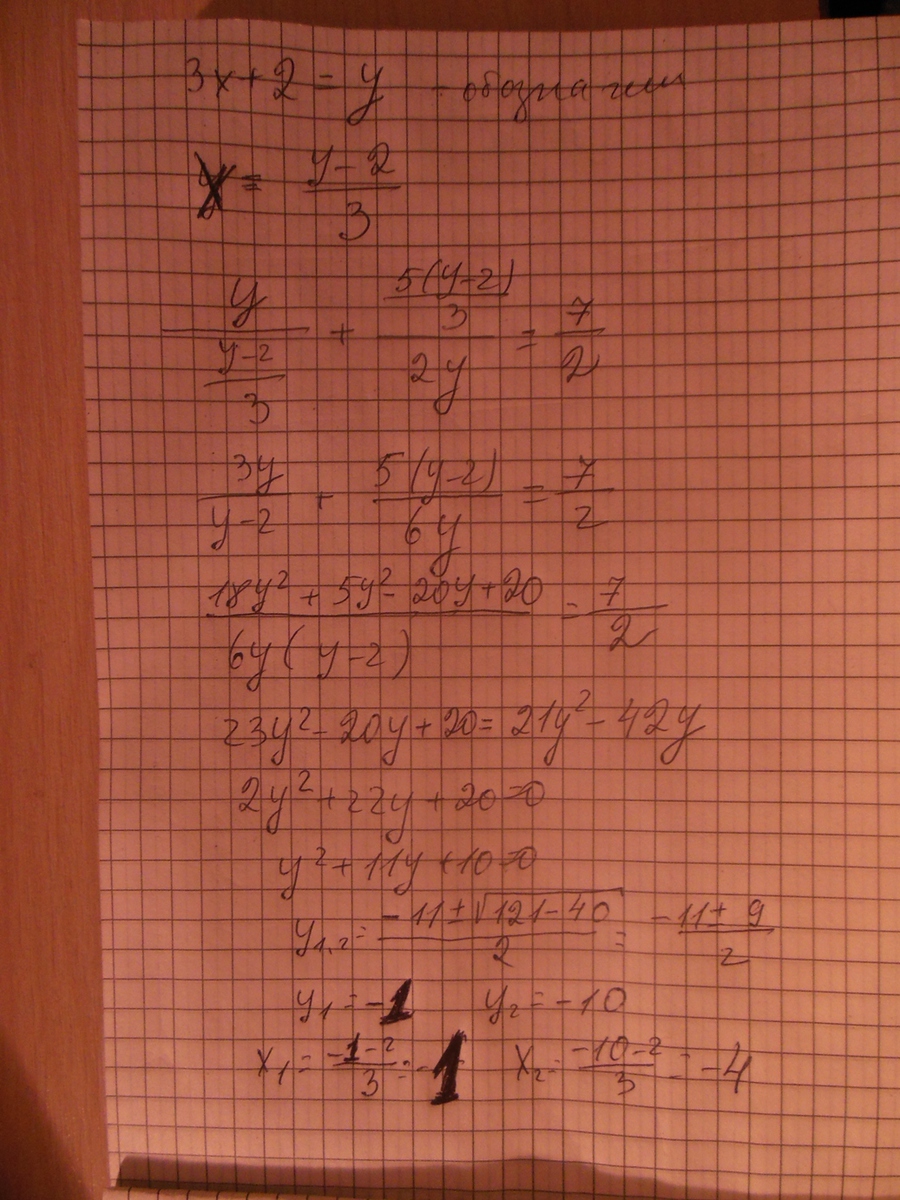 3x+2 = y - обозначим
x = (y-2)/3
y/((y-2)/3) + (5(y-2)/3)/(2y) = 7/2
3y/(y-2) + 5(y-2)/(6y) = 7/2
(18y² + 5y² - 20y + 20)/(6y(y-2)) = 7/2
23y² - 20y + 20 = 21y² - 42y
2y² + 22y + 20 = 0
y² + 11y + 10 = 0
y₁,₂ = (-11 ± √(121-40))/2 = (-11 ± 9)/2
y₁ = -1 y₂ = -10
x₁ = (-1-2)/3 = -1 x₂ = (-10-2)/3 = -4